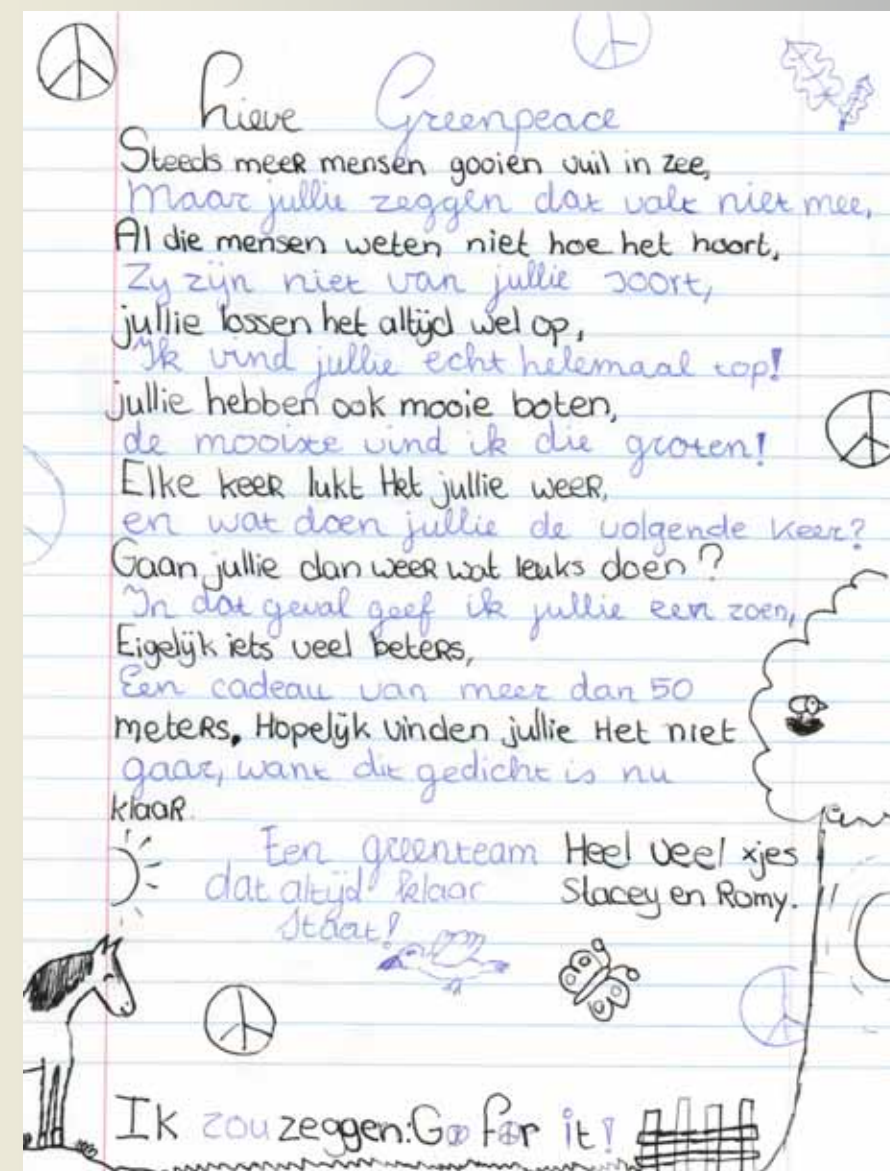 Lieve Greenpeace
Steeds meer mensen gooien vuil in zee,
Maar jullie zeggen dat valt niet mee,
Al die mensen weten niet hoe het hoort,
Zy zijn niet van jullie soort,
jullie lossen het altijd wel op,
Ik vind jullie echt helemaal top!
jullie hebben ook mooie boten,
de mooiste vind ik die groten!
Elke keer lukt Het jullie weer,
en wat doen jullie de volgende keer?
Gaan jullie dan weer wat leuks doen?
In dat geval geef ik jullie een zoen,
Eigelijk iets veel beters,
Een cadeau van meer dan 50
meters. Hopelijk vinden jullie Het niet
gaar, want dit gedicht is nu
klaar.
Een greenteam
dat altijd klaar
Staat!
Heel veel xjes
Stacey en Romy.
Ik zou zeggen: Go for it!